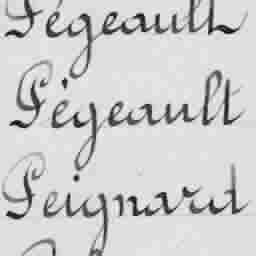 Pégeault
Pégeault
Peignard